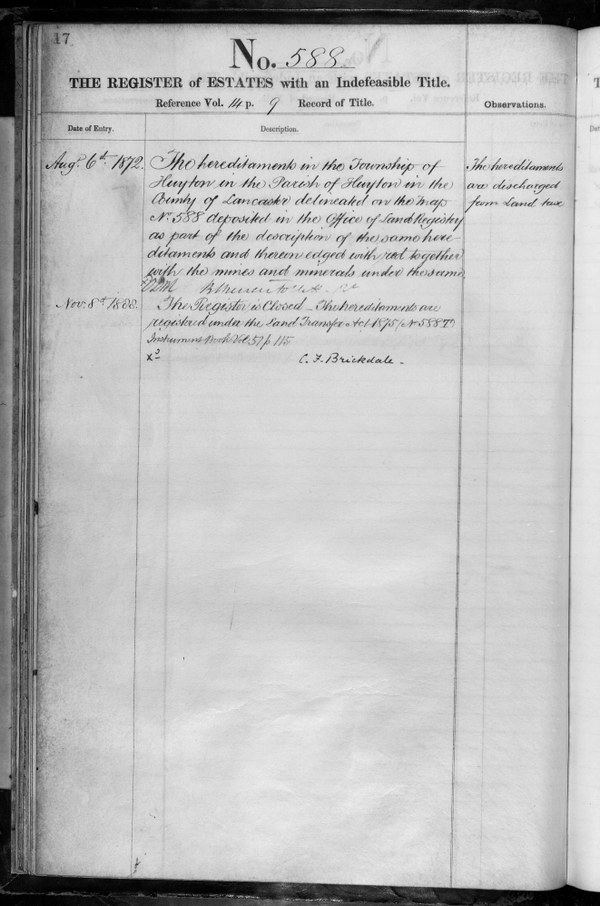 17
No. 588
THE REGISTER of ESTATES with an Indefeasible Title.
Reference Vol. 14 p. 9 Record of Title.
Observations.
Date of Entry.
Description.
Augt. 6th 1872.
The hereditaments in the Township of
Huyton in the Parish of Huyton in the
County of Lancaster delineated on the Map
No. 588 deposited in the Office of Land Registry
as part of the description of the same here-
ditaments and thereon edged with red together
with the mines and minerals under the same
The hereditaments
are discharged
from Land tax
Nov. 8th 1888.
The Register is Closed. The hereditaments are
registered under the Land Transfer Act 1875 (No. 5887)
Instrument Book Vol. 57 p 115
C. F. Brickdale.